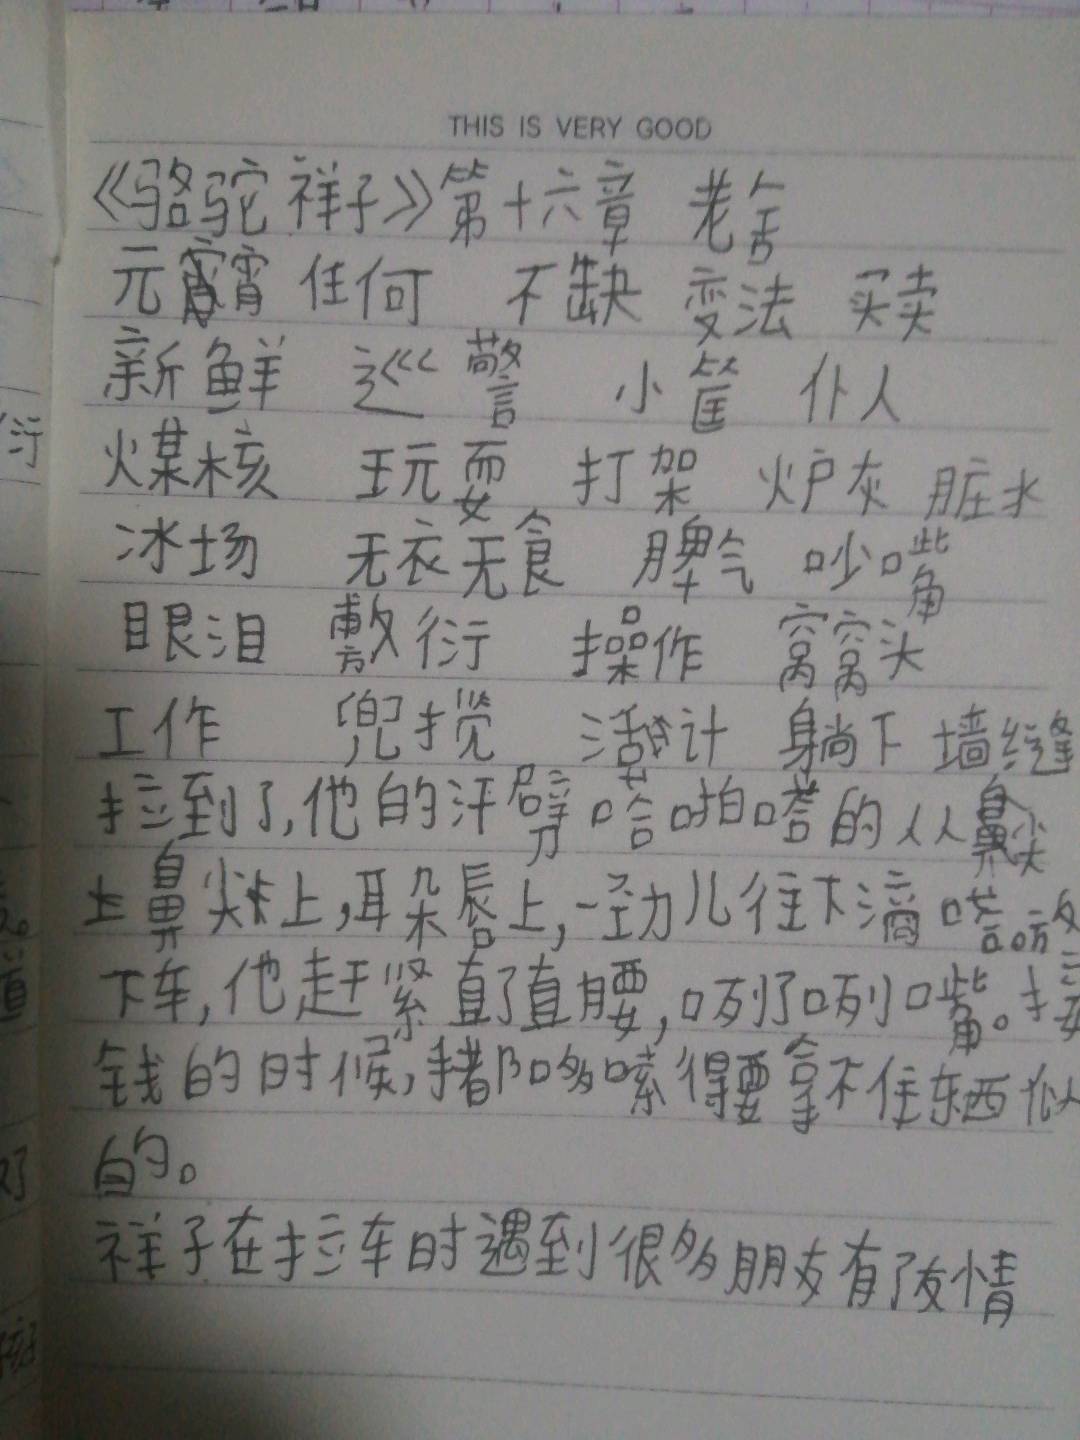 THIS IS VERY GOOD
《骆驼祥子》第十六章 老舍
元宵 任何 不缺 变法 买卖
新鲜 巡警 小筐 仆人
煤核 玩耍 打架 炉灰 脏水
冰场 无衣无食 脾气 吵嘴
眼泪 敷衍 操作 窝窝头
工作 兜揽 活计 躺下 墙缝
拉到了,他的汗劈嗒啪嗒的从鼻尖
上鼻尖上,耳朵唇上,一劲儿往下滴嗒放
下车,他赶紧直了直腰,咧了咧嘴。接
钱的时候,手都哆嗦得要拿不住东西似
的。
祥子在拉车时遇到很多朋友有了友情